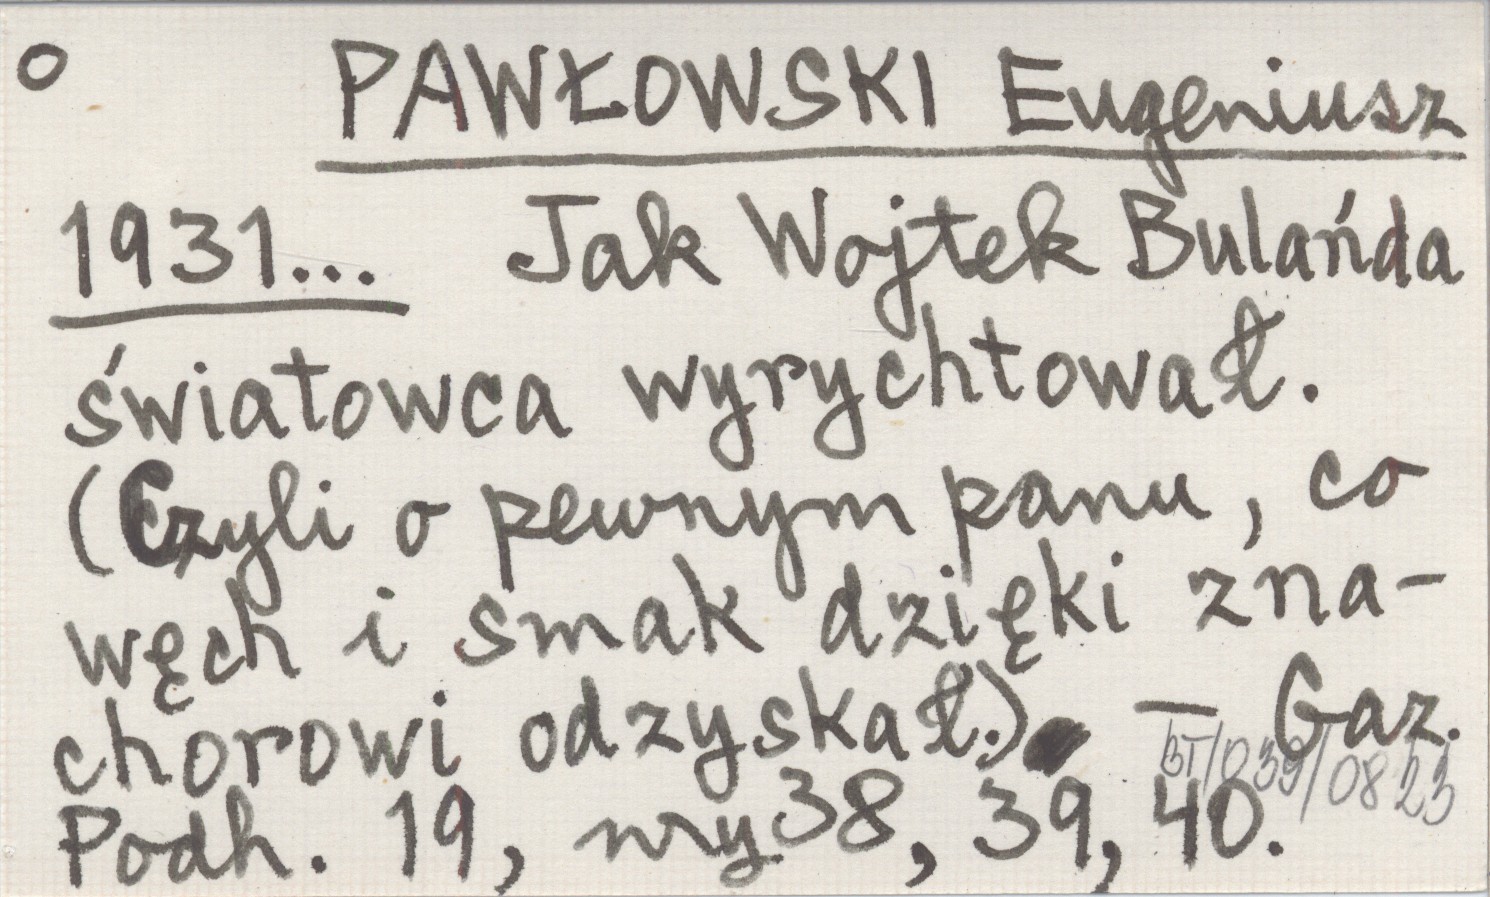 o PAWŁOWSKI Eugeniusz
1931... Jak Wojtek Bulańda
światowca wyrychtował.
(Czyli o pewnym panu, co
węch i smak dzięki zna-
chorowi odzyskał.) — Gaz.
BT/039/08 23
Podh. 19, nry 38, 39, 40.